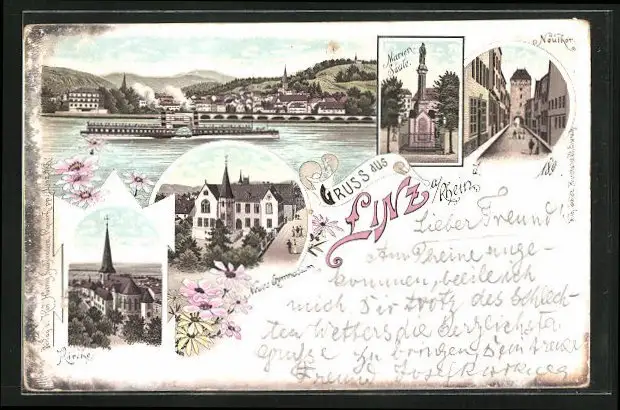 Marien
Säule.
Neuthor
Gruss aus
Linz
a/Rhein
d.
189
Neues Gymnasium
Kirche
Lieber Freund!
Am Rheine ange-
kommen, beeile ich
mich, Dir trotz des Schlech-
ten Wetters die herzlichsten
Grüsse zu bringen, Dein treuer
Freund